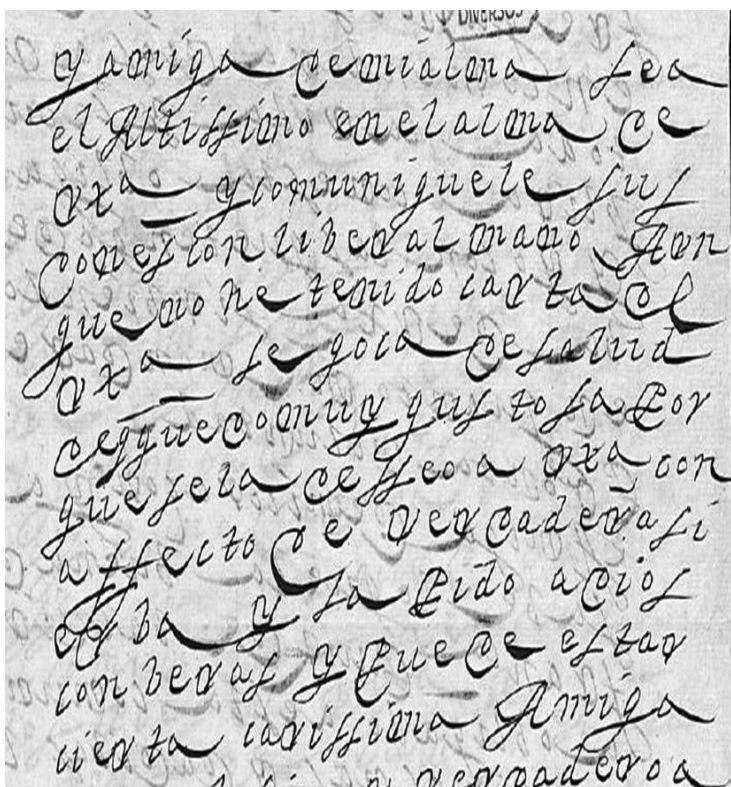 DIVERSOS
y amiga de mi alma sea
el Altissimo en el alma de
vxª y comuniquele sus
dones con liberal mano Aun
que no he tenido carta de
vxª se goça de salud
de q quedo muy gustosa por
que se la desseo a vxª con
affecto de verdadera si
erba y la pido a dios
con veras y puede estar
cierta carissima Amiga
verdadero a